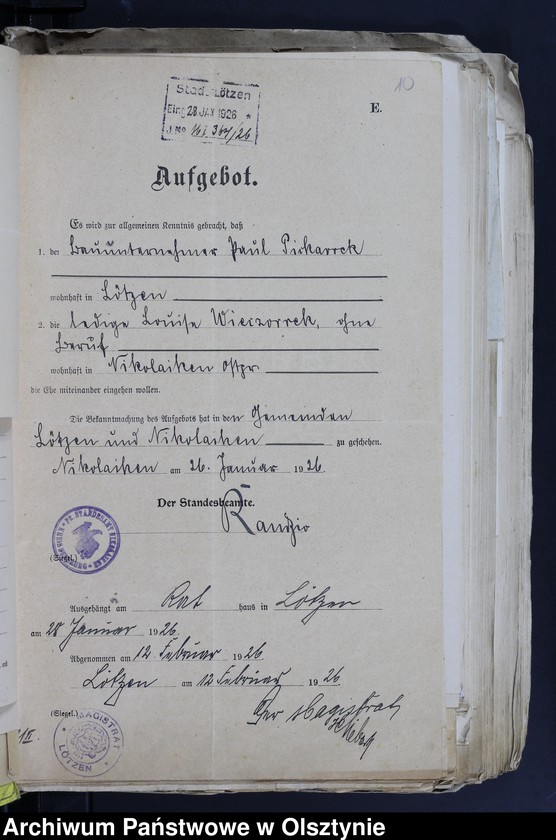 10
Stadt Lötzen
Eing. 28 JAN 1926 *
J. No
E.
Aufgebot.
Es wird zur allgemeinen Kenntnis gebracht, daß
1. der Bauunternehmer Paul Piekarrek
wohnhaft in Lötzen
2. die ledige Louise Wieczorrek, ohne
Beruf
wohnhaft in Nikolaiken Ostpr.
die Ehe miteinander eingehen wollen.
Die Bekanntmachung des Aufgebots hat in den Gemeinden
Lötzen und Nikolaiken zu geschehen.
Nikolaiken am 26. Januar 1926.
Der Standesbeamte.
Randzio
(Siegel.)
Ausgehängt am Rathaus in Lötzen
am 28 Januar 1926.
Abgenommen am 12 Februar 1926.
Lötzen am 12 Februar 1926.
Der Magistrat
(Siegel.)
MAGISTRAT
LÖTZEN
Archiwum Państwowe w Olsztynie